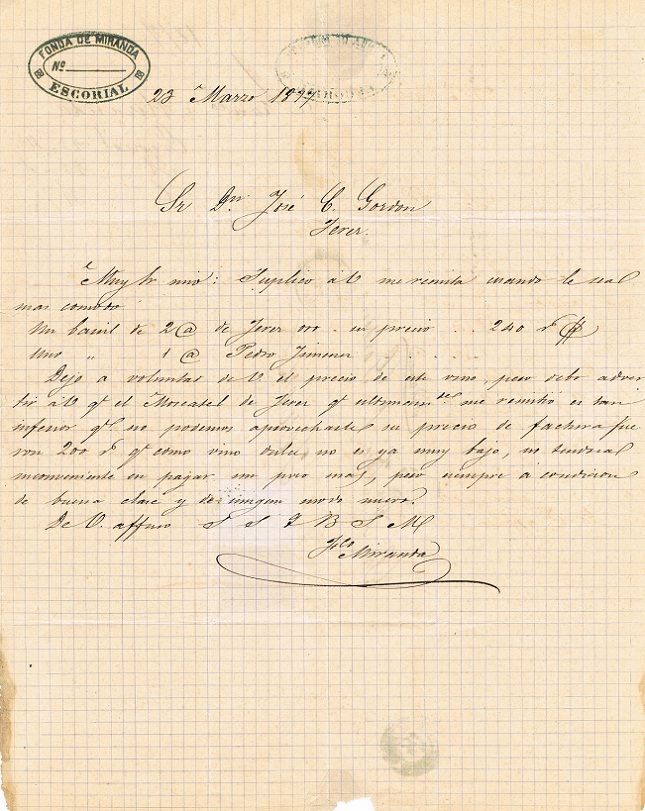 FONDA DE MIRANDA
Nº
ESCORIAL
23 Marzo 1877
Sr Dn José C. Gordon
Jerez.
Muy Sr mio: Suplico á V me remita cuando le sea
mas comodo
Un barril de 2 @ de Jerez oro. su precio .. 240 rs @
Uno " 1 @ Pedro Jimenez . . . .
Dejo a voluntad de V. el precio de este vino, pero debo adver
tir á V qe el Moscatel de Jerez qe ultimamte me remitió es tan
inferior qe no podemos aprovecharle su precio de factura fue
ron 200 rs qe como vino dulce, no es ya muy bajo, no tendria
inconveniente en pagar un poco mas, pero siempre á condicion
de buena clase y de ningun modo nuevo.
De V. affmo S S Q B S M
Fco Miranda